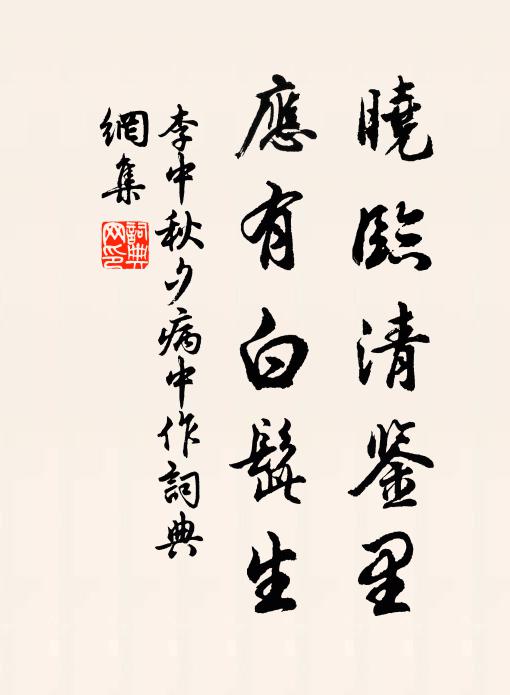 曉臨清鉴里
應有白髭生
李中秋夕病中作詞典
網集
詞典
网印